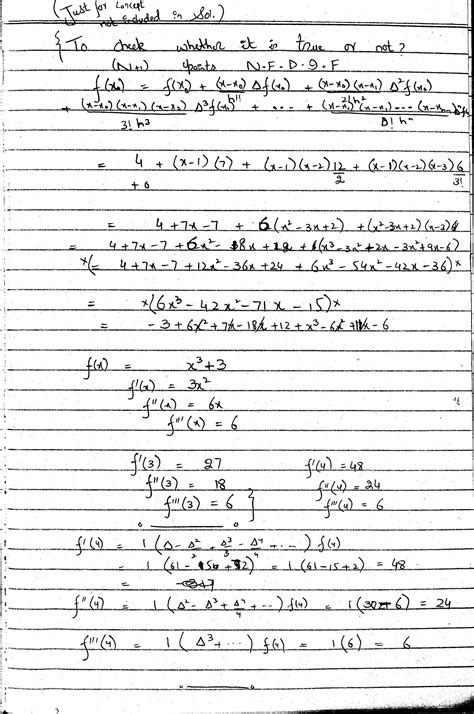 (Just for concept
not included in Sol.)
{ To check whether it is true or not?
(N+1) points N.F.D.I.F
f(x₀) = f(x₀) + (x-x₀) Δf(x₀) + (x-x₀)(x-x₁) Δ²f(x₀)
h¹1! 2!h²
+ (x-x₀)(x-x₁)(x-x₂) Δ³f(x₀) + .... + (x-x₀)(x-x₁)...(x-xₙ₋₁)Δⁿf
3! h³ n! hⁿ
= 4 + (x-1)(7) + (x-1)(x-2) 12/2 + (x-1)(x-2)(x-3) 6/3!
+ 0
= 4+7x-7 + 6(x²-3x+2) + (x²-3x+2)(x-3)
= 4+7x-7 + 6x² - 18x+12 + (x³-3x²+2x-3x²+9x-6)
×(= 4+7x-7+12x²-36x+24 + 6x³-54x²-42x-36)×
= ×(6x³-42x²-71x-15)×
= -3+6x²+7x-18x+12+x³-6x²+11x-6
f(x) = x³+3
f'(x) = 3x²
f''(x) = 6x
f'''(x) = 6
f'(3) = 27 f'(4) = 48
f''(3) = 18 f''(4) = 24
f'''(3) = 6 } f'''(4) = 6
f'(4) = 1(Δ - Δ²/2 + Δ³/3 - Δ⁴/4 + ...) f(4)
= 1(61 - + ) = 1(61-15+2) = 48
=
f''(4) = 1(Δ² - Δ³ + Δ⁴/4 + ..) f(4) = 1(30-6) = 24
f'''(4) = 1(Δ³ + ...) f(4) = 1(6) = 6